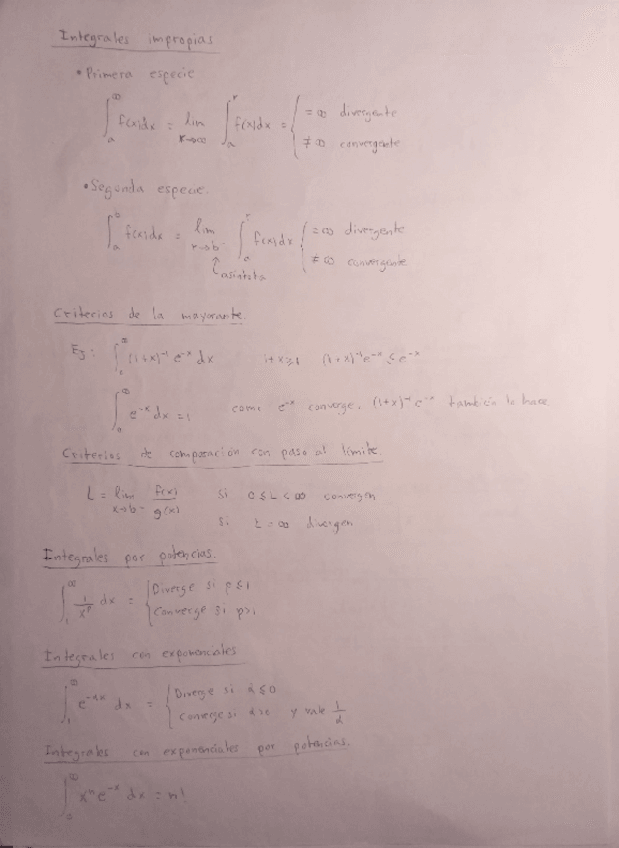 Integrales impropias
• Primera especie
∫_a^∞ f(x)dx = lim_{r→∞} ∫_a^r f(x)dx = { = ∞ divergente
≠ ∞ convergente
• Segunda especie.
∫_a^b f(x)dx = lim_{r→b^-} ∫_a^r f(x)dx { = ∞ divergente
≠ ∞ convergente
asíntota
Criterios de la mayorante.
Ej: ∫ (1+x)^{-1} e^{-x} dx 1+x≥1 (1+x)^{-1}e^{-x} ≤ e^{-x}
∫_0^∞ e^{-x} dx = 1 como e^{-x} converge, (1+x)^{-1} e^{-x} también lo hace
Criterios de comparación con paso al límite
L = lim_{x→b^-} f(x)/g(x) si 0 ≤ L < ∞ convergen
si L = ∞ divergen
Integrales por potencias.
∫_1^∞ 1/x^p dx = { Diverge si p ≤ 1
Converge si p>1
Integrales con exponenciales
∫_1^∞ e^{-αx} dx = { Diverge si α ≤ 0
Converge si α>0 y vale 1/α
Integrales con exponenciales por potencias.
∫_0^∞ x^n e^{-x} dx = n!